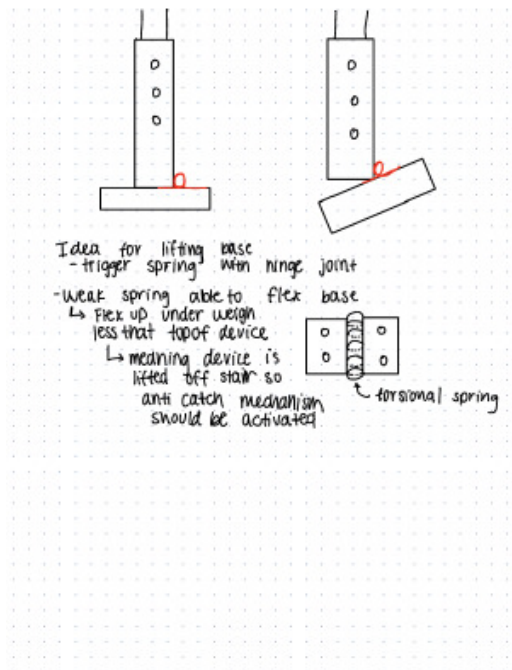 Idea for lifting base
- trigger spring with hinge joint
- weak spring able to flex base
↳ flex up under weigh
less that top of device
↳ meaning device is
lifted off stair so
anti catch mechanism
should be activated
torsional spring